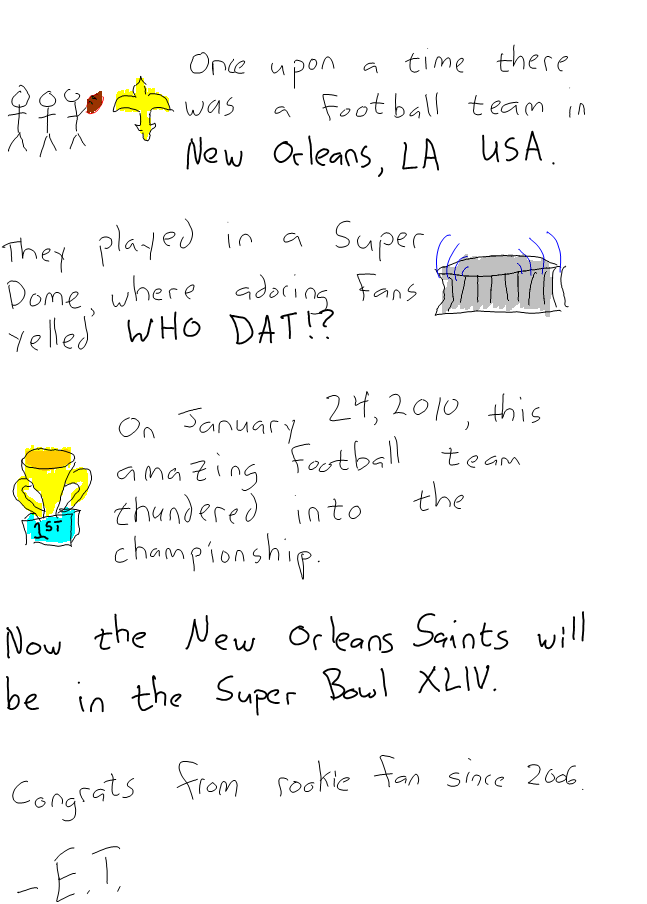 Once upon a time there
was a football team in
New Orleans, LA USA.
They played in a Super
Dome, where adoring fans
yelled WHO DAT!?
On January 24, 2010, this
amazing football team
thundered into the
championship.
1ST
Now the New Orleans Saints will
be in the Super Bowl XLIV.
Congrats from rookie fan since 2006.
- E.T.